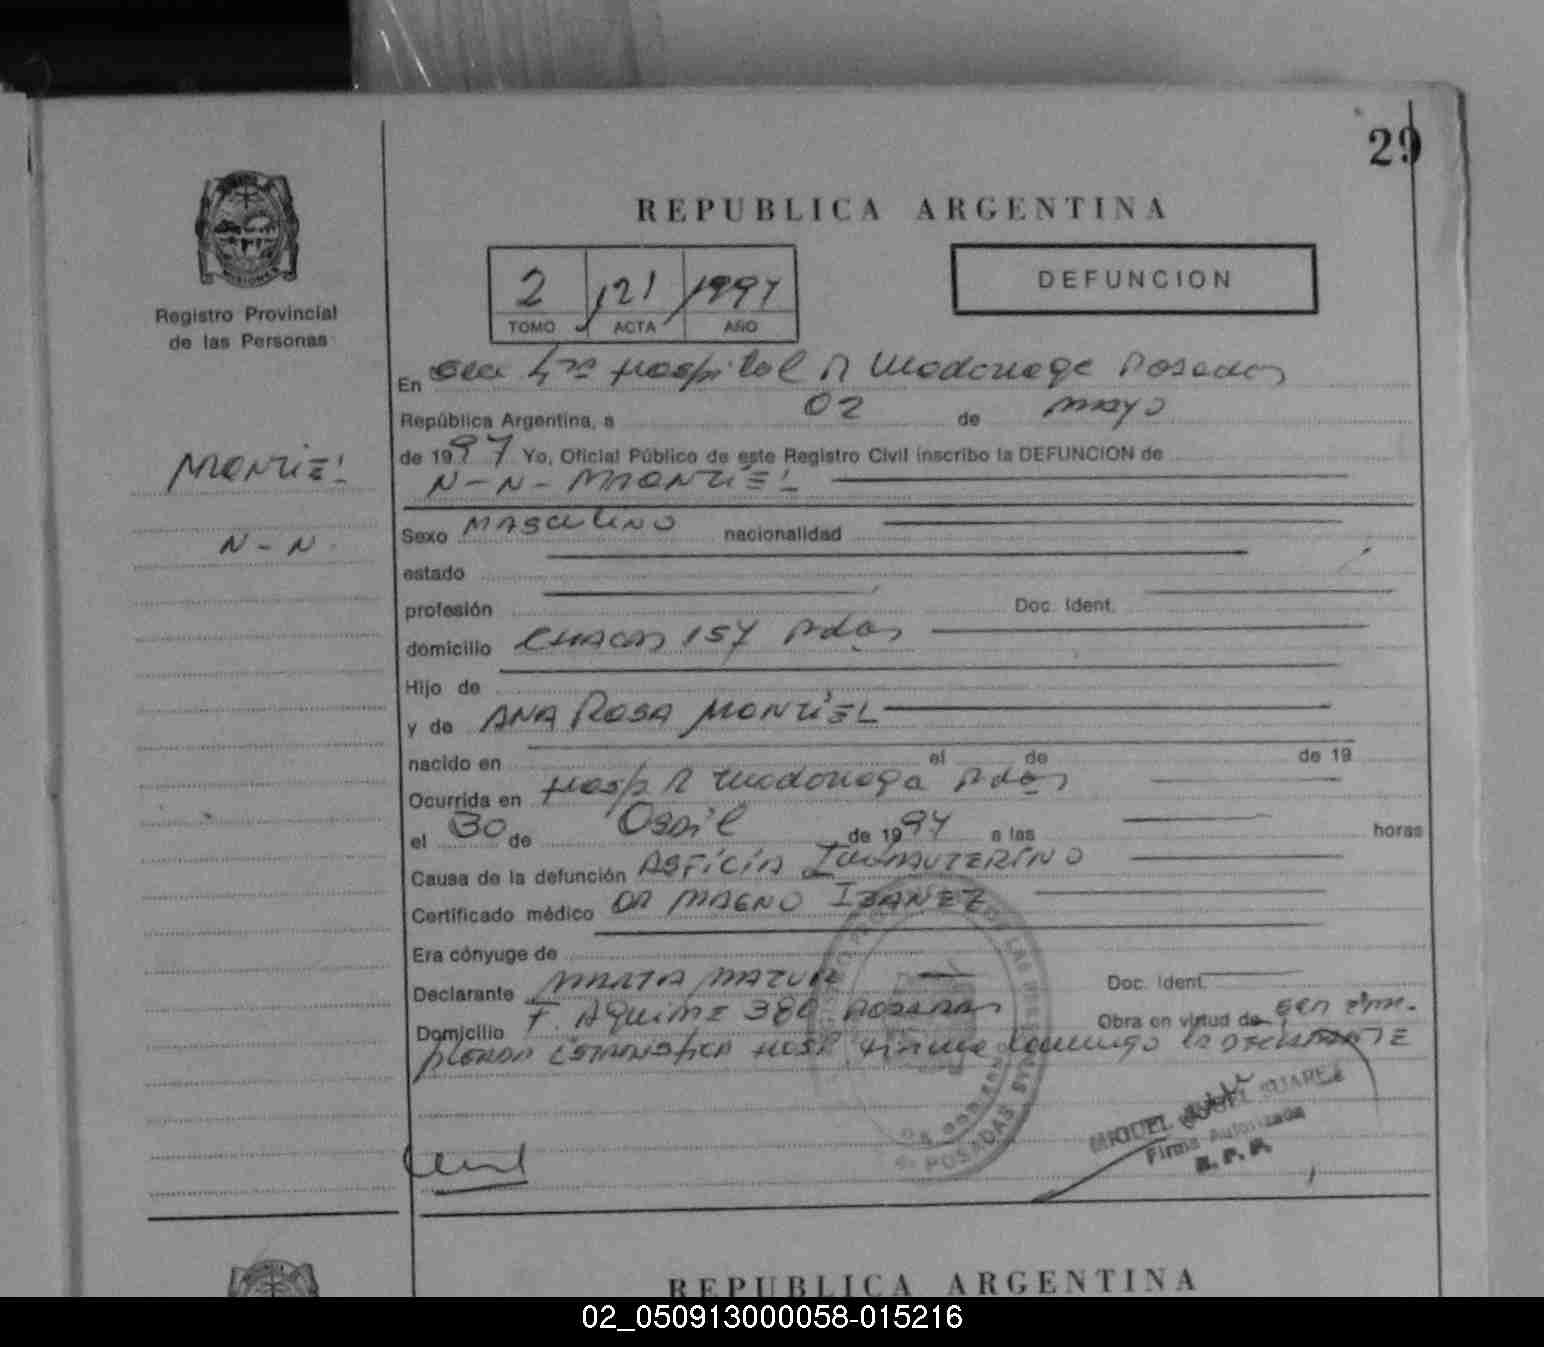 29
REPUBLICA ARGENTINA
Registro Provincial
de las Personas
2 121 1997
TOMO ACTA AÑO
DEFUNCION
En Hospital R Madariaga Posadas
República Argentina, a 02 de mayo
de 1997 Yo, Oficial Público de este Registro Civil inscribo la DEFUNCION de
N-N- MONTIEL
MONTIEL
N-N
Sexo MASCULINO nacionalidad
estado
profesión Doc. Ident.
domicilio CHACAS 157 Pdas
Hijo de
y de ANA ROSA MONTIEL
nacido en el de de 19
Ocurrida en Hosp R Madariaga Pdas
el 30 de Abril de 1997 a las horas
Causa de la defunción ASFICIA INTRAUTERINO
Certificado médico DR MAGNO IBAÑEZ
Era cónyuge de
Declarante MARTA Doc. Ident.
Domicilio F. AGUIRRE 380 POSADAS Obra en virtud de ser em-
pleada HOSP LA DECLARANTE
POSADAS
MIGUEL ANGEL SUAREZ
Firma Autorizada
R. P. P.
REPUBLICA ARGENTINA
02_050913000058-015216